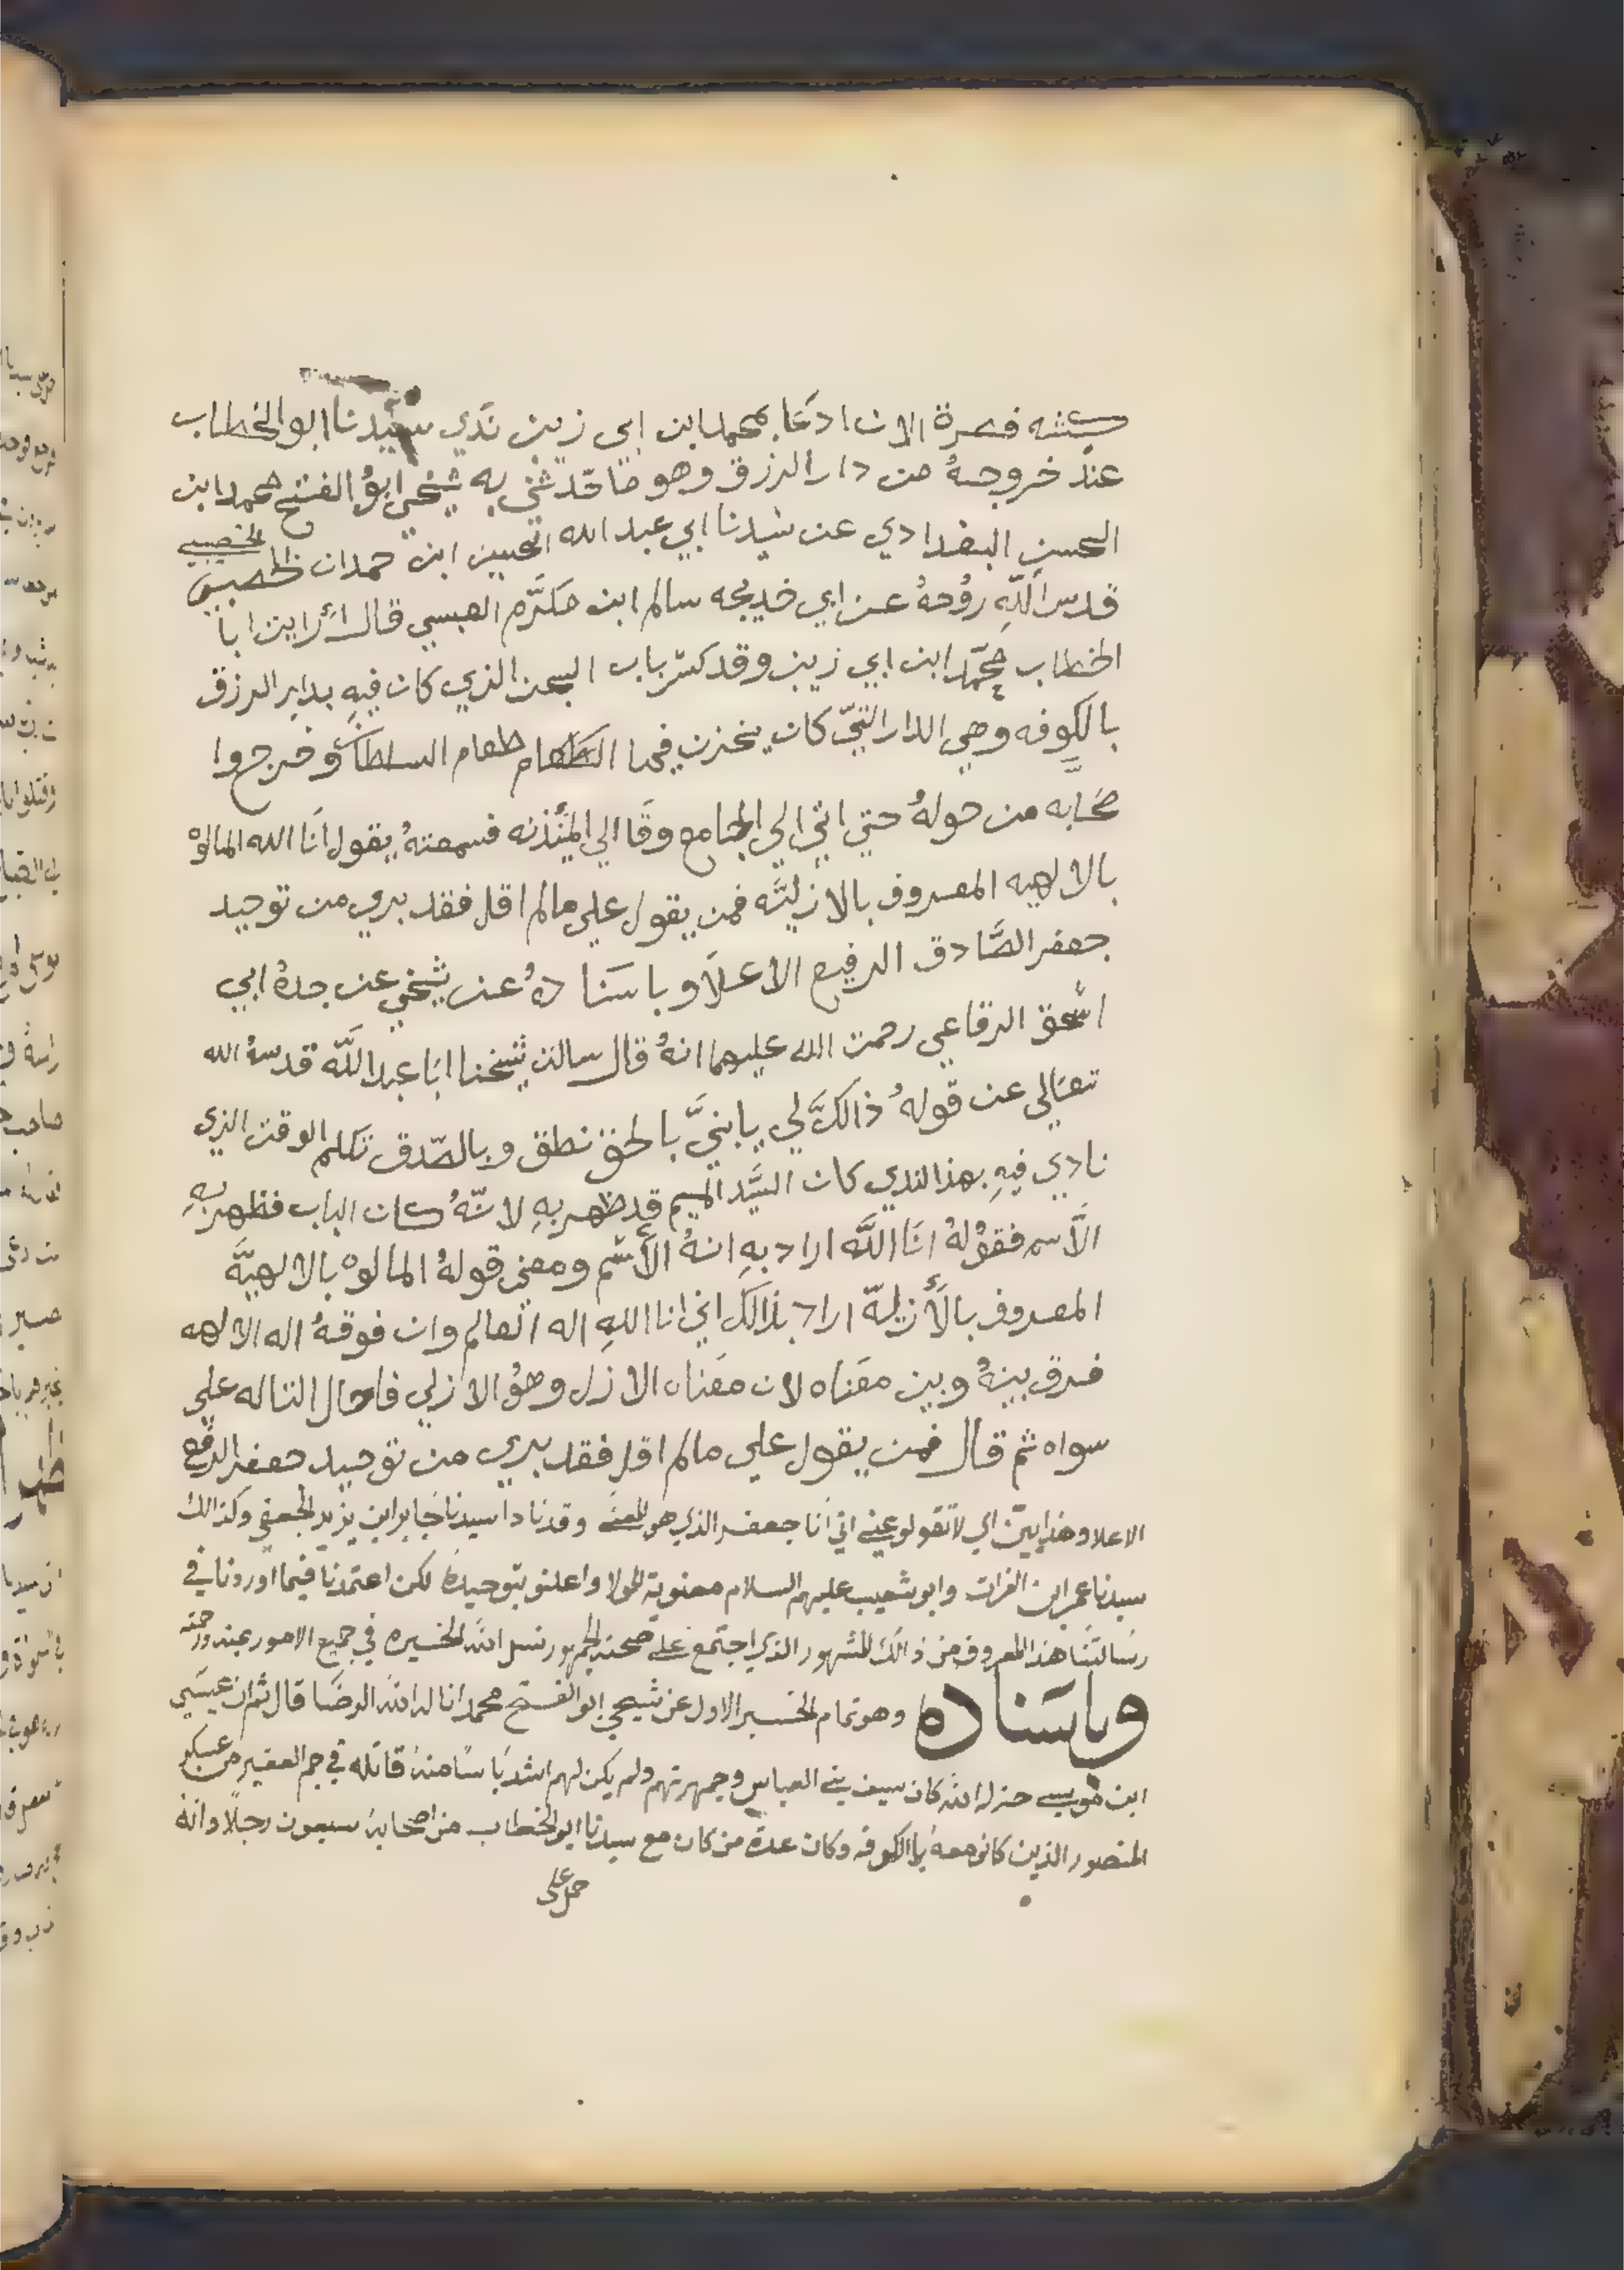 فصرة الان ادعا بمحمد ابن ابي زينب ندي سيدنا ابو الخطاب
عند خروجهُ من دار الرزق وهو ما حَدثني به شيخي ابوُ الفتح محمد ابن
الحسن البغدادي عن سَيدنا ابي عبد الله الحسين ابن حمدان الخصيبي
قدس اللّه روُحهُ عن ابي خديجه سالم ابن مكرَّم العبسي قال رايت ابا
الخطاب محمَّد ابن ابي زينب وقد كسّر باب السجن الذي كان فيهِ بدار الرزق
بالكوفه وهي الدار التيّ كان يخزن فيها الطعام طعام السلطان وخرجوا
صحَابه من حولهُ حتي اتي الي الجامع وقا الي الميُذنه فسمعتهُ يقول انَا الله المالوهْ
بالالهيه المعروف بالازليَّه فمن يقول علي مالم اقل فقد بري من توحيد
جعفر الصَّادق الرفيع الاعلَا وباسنَادهُ عن شيخي عن جدهُ ابي
اسْحق الرقاعي رحمت الله عليهما انهُ قال سالت شيخنا ابَا عبد اللَّه قدسهُ الله
تعَالي عن قولهُ ذالك لي يابنيَّ بالحق نطق وبالصّدق تكلم الوقت الذي
نادي فيهِ بهذا الندي كان السَّيد الميم قد ظهر بهِ لانّهُ كان الباب فظهر بهِ
الاَسم فقوْلهُ انَا اللَّه اراد بهِ انهُ الأسْم ومعني قولهُ المالوه بالالهيَّة
المعروف بالأَزليَّة اراد بذالك اني انا اللهِ اله العالم وان فوقهُ اله الالهه
فرق بينهُ وبين معَناه لان معَناه الازل وهوُ الازلي فاحال التاله علي
سواه ثم قال فمن يقول علي مالم اقل فقد بري من توحيد جعفر الرفيع
الاعلا وهذا يبَيّن اي لا تقولو عني اني انَا جعفر الذي هو المعنَي وقد نادا سيدنا جَابر ابن يزيد الجعفي وكذالك
سيدنا عمر ابن الفرات وابو شعيب عليهم السلام معنوية المولا واعلنو بتوحيدهُ لكن اعتمدنا فيما اوردنا في
رسَالتنَا هذا المعروف من ذالك المشهور الذي اجتمع علي صحته الجمهور نسل اللَّه الخسيره في جميع الامور بمنه ورحمته
وباسَنادهُ وهو تمام الخسبر الاول عن شيخي ابو الفستح محمد انا له اللَّه الرضَا قال ثم ان عيسَي
ابن موسي خزله اللَّه كان سيف بني العباس وجمهرتهم ولم يكن لهم اشد بَاسًا منهُ قاتله في جم الغفير من عسكر
المنصور الذين كانو معهُ بالكوفه وكان عدة من كان مع سيدنا ابو الخطاب من اصحابهُ سبعون رجلًا وانهُ